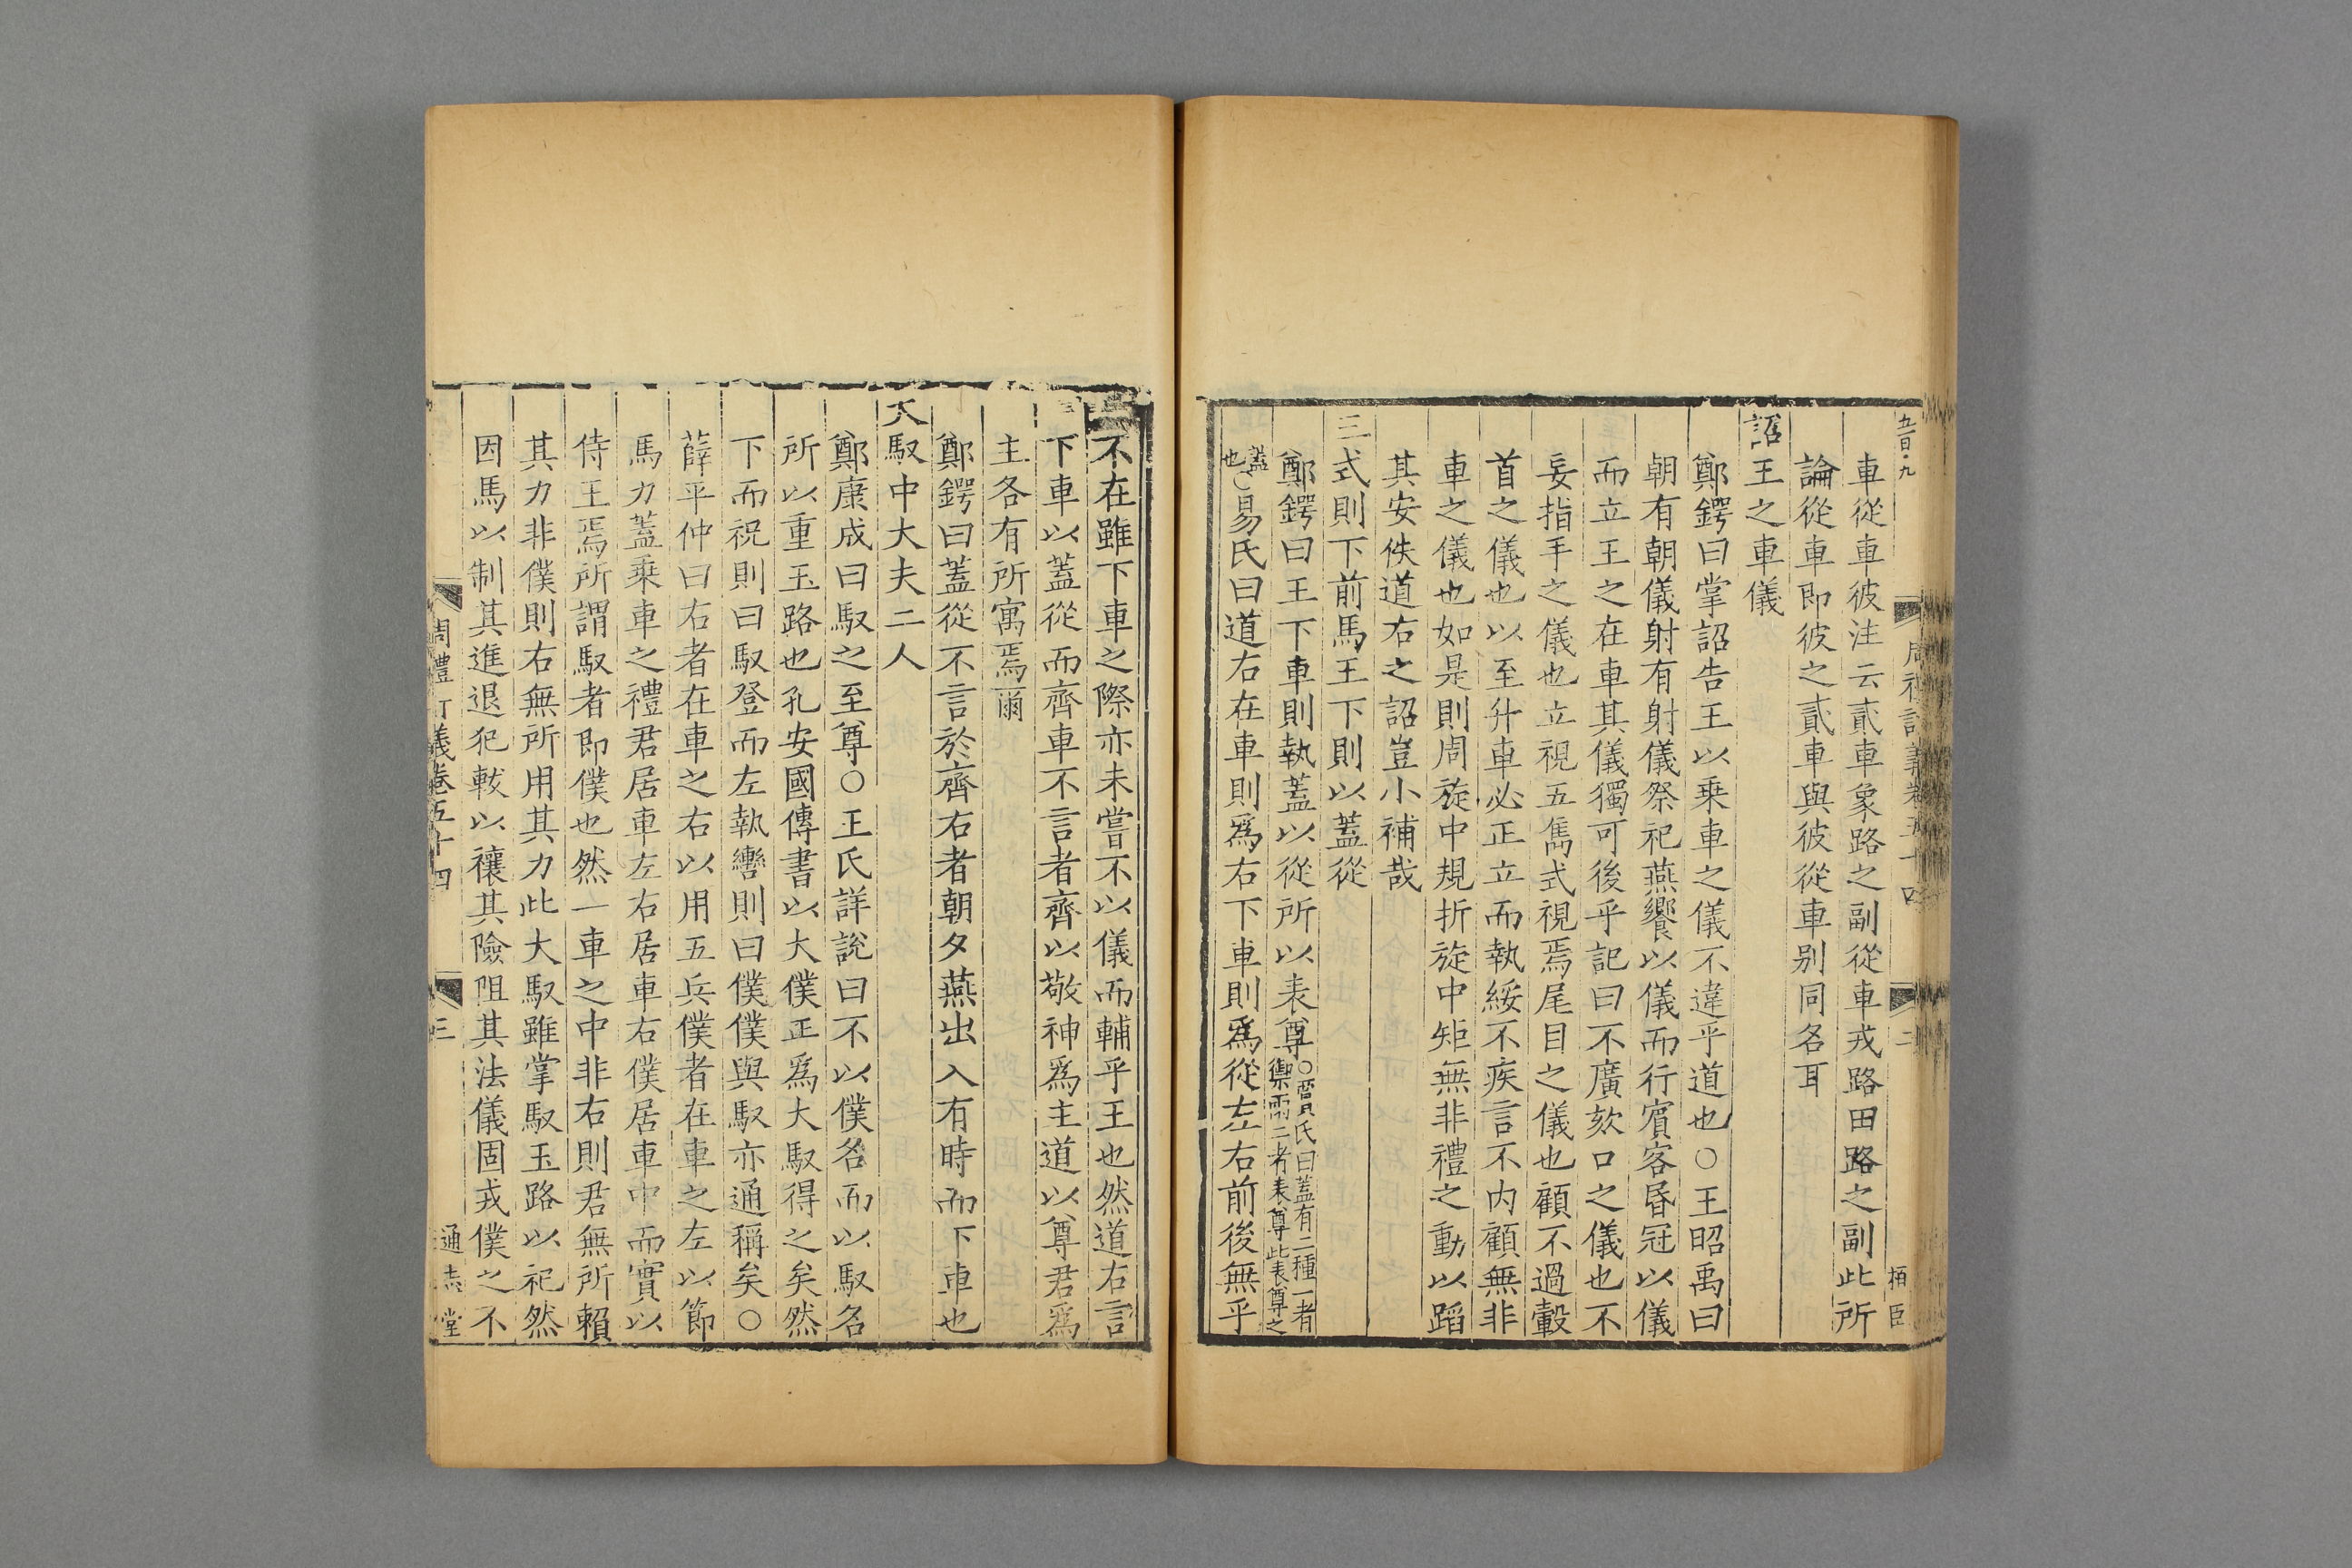 五百九
周禮訂義卷五十四 二 栢臣
車從車彼注云貳車象路之副從車戎路田路之副此所
論從車即彼之貳車與彼從車别同名耳
詔王之車儀
鄭鍔曰掌詔告王以乗車之儀不違乎道也○王昭禹曰
朝有朝儀射有射儀祭祀燕饗以儀而行賔客昏冠以儀
而立王之在車其儀獨可後乎記曰不廣欬口之儀也不
妄指手之儀也立視五雋式視焉尾目之儀也顧不過轂
首之儀也以至升車必正立而執綏不疾言不内顧無非
車之儀也如是則周旋中規折旋中矩無非禮之動以蹈
其安佚道右之詔豈小補哉
王式則下前馬王下則以蓋從
鄭鍔曰王下車則執蓋以從所以表尊○賈氏曰蓋有二種一者禦雨二者表尊此表尊之
蓋也○易氏曰道右在車則爲右下車則爲從左右前後無乎
不在雖下車之際亦未嘗不以儀而輔乎王也然道右言
下車以蓋從而齊車不言者齊以敬神爲主道以尊君爲
主各有所寓焉爾
鄭鍔曰蓋從不言於齊右者朝夕燕出入有時而下車也
大馭中大夫二人
鄭康成曰馭之至尊○王氏詳說曰不以僕名而以馭名
所以重玉路也孔安國傳書以大僕正爲大馭得之矣然
下而祝則曰馭登而左執轡則曰僕僕與馭亦通稱矣○
薛平仲曰右者在車之右以用五兵僕者在車之左以節
馬力蓋乗車之禮君居車左右居車右僕居車中而實以
侍王焉所謂馭者即僕也然一車之中非右則君無所賴
其力非僕則右無所用其力此大馭雖掌馭玉路以祀然
因馬以制其進退犯軷以禳其險阻其法儀固戎僕之不
周禮訂義卷五十四 三 通志堂